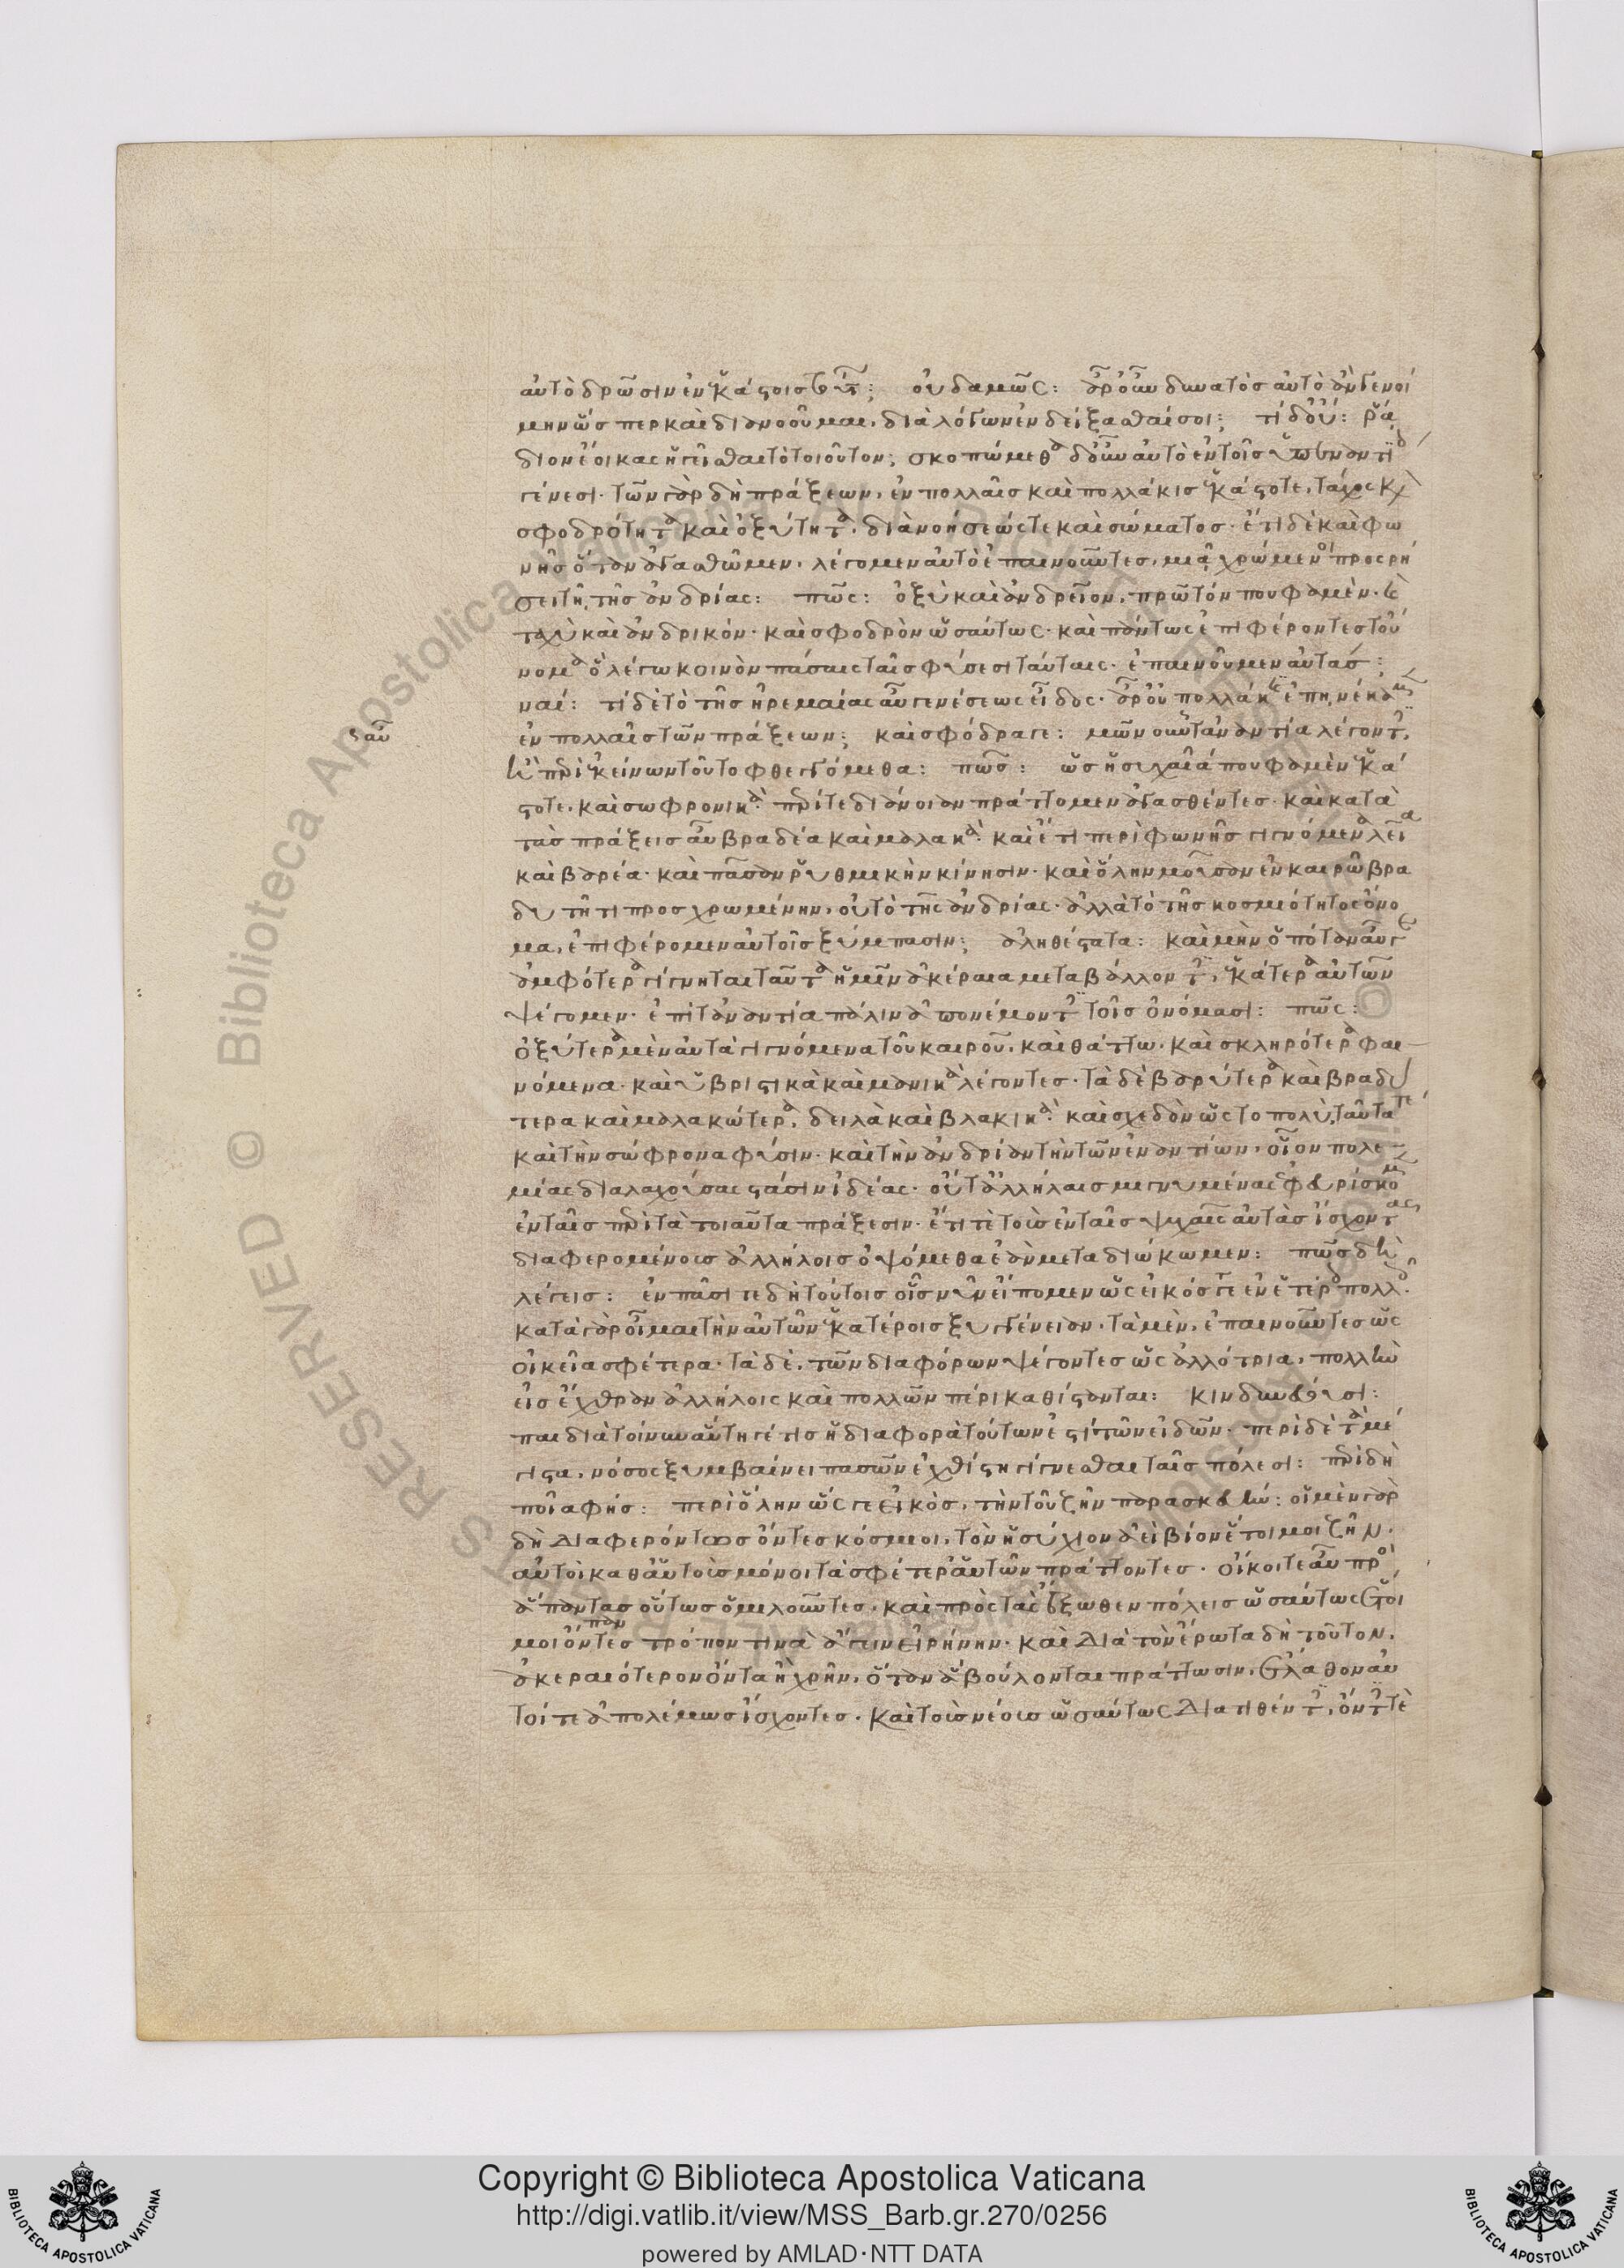 αὐτὸ δρῶσιν ἑκάστοις τοῦτο; οὐδαμῶς: ἆρ' οὖν δυνατὸς αὐτὸ ἂν γενοί
μην ὥσπερ καὶ διανοοῦμαι, διὰ λόγων ἐνδείξασθαί σοι; τί δ' οὔ: ῥᾴ
διον ἔοικας ἡγεῖσθαι τὸ τοιοῦτον; σκοπώμεθα δ' οὖν αὐτὸ ἐν τοῖς ὑπεναντί
γένεσι. τῶν γὰρ δὴ πράξεων, ἐν πολλαῖς καὶ πολλάκις ἑκάστοτε, τάχος καὶ
σφοδρότητα καὶ ὀξύτητα, διανοήσεώς τε καὶ σώματος. ἔτι δὲ καὶ φω
νῆς ὅταν ἀγασθῶμεν, λέγομεν αὐτὸ ἐπαινοῦντες, μιᾷ χρώμενοι προσρή
σει τῇ τῆς ἀνδρίας: πῶς: ὀξὺ καὶ ἀνδρεῖον, πρῶτόν που φαμὲν. καὶ
ταχὺ καὶ ἀνδρικόν. καὶ σφοδρὸν ὡσαύτως. καὶ πάντως ἐπιφέροντες τοὔ
νομα ὃ λέγω κοινὸν πάσαις ταῖς φύσεσι ταύταις. ἐπαινοῦμεν αὐτάς:
ναί: τί δὲ τὸ τῆς ἠρεμαίας αὖ γενέσεως εἶδος. ἆρ' οὐ πολλάκις ἐπῃνέκαμεν
ἐν πολλαῖς τῶν πράξεων; καὶ σφόδρα γε: μῶν οὖν τἀναντία λέγοντες,
ἢ περὶ ἐκείνων τοῦτο φθεγγόμεθα: πῶς: ὡς ἡσυχαῖά που φαμὲν ἑκά
στοτε, καὶ σωφρονικὰ. περί τε διάνοιαν πραττόμεν ἀγασθέντες. καὶ κατὰ
τὰς πράξεις αὖ βραδέα καὶ μαλακὰ. καὶ ἔτι περὶ φωνῆς γιγνόμενα λεῖα
καὶ βαρέα. καὶ πᾶσαν ῥυθμικὴν κίνησιν. καὶ ὅλην μοῦσαν ἐν καιρῷ βρα
δυτῆτι προσχρωμένην, οὐ τὸ τῆς ἀνδρίας. ἀλλὰ τὸ τῆς κοσμότητος ὄνο
μα, ἐπιφέρομεν αὐτοῖς ξύμπασιν; ἀληθέστατα: καὶ μὴν ὁπόταν αὖ γε
ἀμφότερα γίγνηται ταῦτα ἡμῖν ἀκέραια μεταβάλλοντες, ἑκάτερα αὐτῶν
ψέγομεν. ἐπὶ τἀναντία πάλιν ἀπονέμοντες τοῖς ὀνόμασι: πῶς:
ὀξύτερα μὲν αὐτὰ γιγνόμενα τοῦ καιροῦ, καὶ θάττω. καὶ σκληρότερα φαι
νόμενα. καὶ ὑβριστικὰ καὶ μανικὰ λέγοντες. τὰ δὲ βαρύτερα καὶ βραδύ
τερα καὶ μαλακώτερα, δειλὰ καὶ βλακικὰ. καὶ σχεδὸν ὡς το πολὺ, ταῦτα τε
καὶ τὴν σώφρονα φύσιν. καὶ τὴν ἀνδρίαν τὴν τῶν ἐναντίων, οἷον πολε
μίας διαλαχούσας στάσιν ἰδέας. οὔτ' ἀλλήλαις μιγνυμένας ἐφευρίσκομεν
ἐν ταῖς περὶ τὰ τοιαῦτα πράξεσιν. ἔτι τὲ τοὺς ἐν ταῖς ψυχαῖς αὐτὰς ἴσχοντας
διαφερομένους ἀλλήλοις ὀψόμεθα ἐὰν μεταδιώκωμεν: πῶς δὴ
λέγεις: ἐν πᾶσί τε δὴ τούτοις οἷς νῦν εἴπομεν ὡς εἰκός γε ἐν ἑτέροις πολλοῖς.
κατὰ γὰρ οἶμαι τὴν αὐτῶν ἑκατέροις ξυγγένειαν. τὰ μὲν, ἐπαινοῦντες ὡς
οἰκεῖα σφέτερα. τὰ δὲ, τῶν διαφόρων ψέγοντες ὡς ἀλλότρια, πολλὴν
εἰς ἔχθραν ἀλλήλοις καὶ πολλῶν πέρι καθίστανται: κινδυνεύουσι:
παιδιὰ τοίνυν αὕτη γέ τις ἡ διαφορὰ τούτων ἐστί τῶν εἰδῶν. περὶ δὲ τὰ μέ
γιστα, νόσος ξυμβαίνει πασῶν ἐχθίστη γίγνεσθαι ταῖς πόλεσι: περὶ δὴ
ποῖα φῄς: περὶ ὅλην ὥς γε εἰκὸς, τὴν τοῦ ζῆν παρασκευήν: οἱ μὲν γὰρ
δὴ διαφερόντως ὄντες κόσμιοι, τὸν ἡσύχιον ἀεὶ βίον ἕτοιμοι ζῆν.
αὐτοὶ καθ' αὑτοὺς μόνοι τὰ σφέτερ' αὑτῶν πράττοντες. οἴκοι τε αὖ πρὸς
ἅπαντας οὕτως ὁμιλοῦντες. καὶ πρὸς τὰς ἔξωθεν πόλεις ὡσαύτως ἕτοι
μοι ὄντες πάντα τρόπον τινὰ ἄγειν εἰρήνην. καὶ διὰ τὸν ἔρωτα δὴ τοῦτον,
ἀκεραιότερον ὄντα ἢ χρῆν, ὅταν ἃ βούλονται πράττωσιν, ἔλαθον αὐ
τοί τε ἀπολέμως ἴσχοντες. καὶ τοὺς νέους ὡσαύτως διατιθέντες, ὄντες τὲ
Copyright © Biblioteca Apostolica Vaticana
http://digi.vatlib.it/view/MSS_Barb.gr.270/0256
powered by AMLAD·NTT DATA